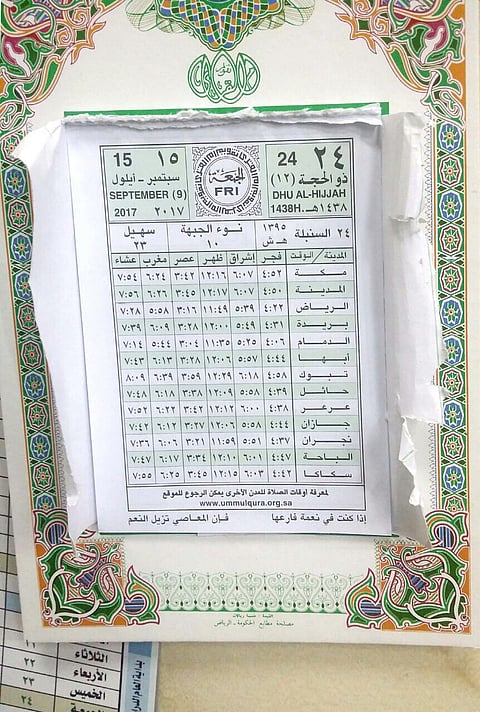 15 ١٥
سبتمبر - أيلول
SEPTEMBER (9)
2017 ٢٠١٧
الجمعة
FRI
24 ٢٤
ذو الحجة (١٢)
DHU AL-HIJJAH
1438H. ١٤٣٨هـ
٢٤ السنبلة ١٣٩٥ هـ ش نوء الجبهة ١٠ سهيل ٢٣
المدينة / الوقت فجر إشراق ظهر عصر مغرب عشاء
مكة ٤:٥٢ ٦:٠٧ ١٢:١٦ ٣:٤٢ ٦:٢٤ ٧:٥٤
المدينة ٤:٥٠ ٦:٠٧ ١٢:١٧ ٣:٤٥ ٦:٢٦ ٧:٥٦
الرياض ٤:٢٢ ٥:٣٩ ١١:٤٩ ٣:١٦ ٥:٥٨ ٧:٢٨
بريدة ٤:٣١ ٥:٤٩ ١٢:٠٠ ٣:٢٨ ٦:٠٩ ٧:٣٩
الدمام ٤:٠٦ ٥:٢٥ ١١:٣٥ ٣:٠٤ ٥:٤٤ ٧:١٤
أبها ٤:٤٤ ٥:٥٧ ١٢:٠٦ ٣:٢٨ ٦:١٣ ٧:٤٣
تبوك ٤:٥٨ ٦:١٨ ١٢:٢٩ ٣:٥٩ ٦:٣٩ ٨:٠٩
حائل ٤:٣٩ ٥:٥٨ ١٢:٠٩ ٣:٣٨ ٦:١٨ ٧:٤٨
عرعر ٤:٣٨ ٦:٠٠ ١٢:١٢ ٣:٤٢ ٦:٢٢ ٧:٥٢
جازان ٤:٤٤ ٥:٥٨ ١٢:٠٦ ٣:٢٧ ٦:١٢ ٧:٤٢
نجران ٤:٣٧ ٥:٥١ ١١:٥٩ ٣:٢١ ٦:٠٦ ٧:٣٦
الباحة ٤:٤٧ ٦:٠١ ١٢:١٠ ٣:٣٤ ٦:١٧ ٧:٤٧
سكاكا ٤:٤٢ ٦:٠٣ ١٢:١٥ ٣:٤٥ ٦:٢٥ ٧:٥٥
لمعرفة أوقات الصلاة للمدن الأخرى يمكن الرجوع للموقع
www.ummulqura.org.sa
إذا كنت في نعمة فارعها فإن المعاصي تزيل النعم
مصلحة مطابع الحكومة - الرياض
الثلاثاء
٢٢ الأربعاء
٢٣ الخميس
٢٤